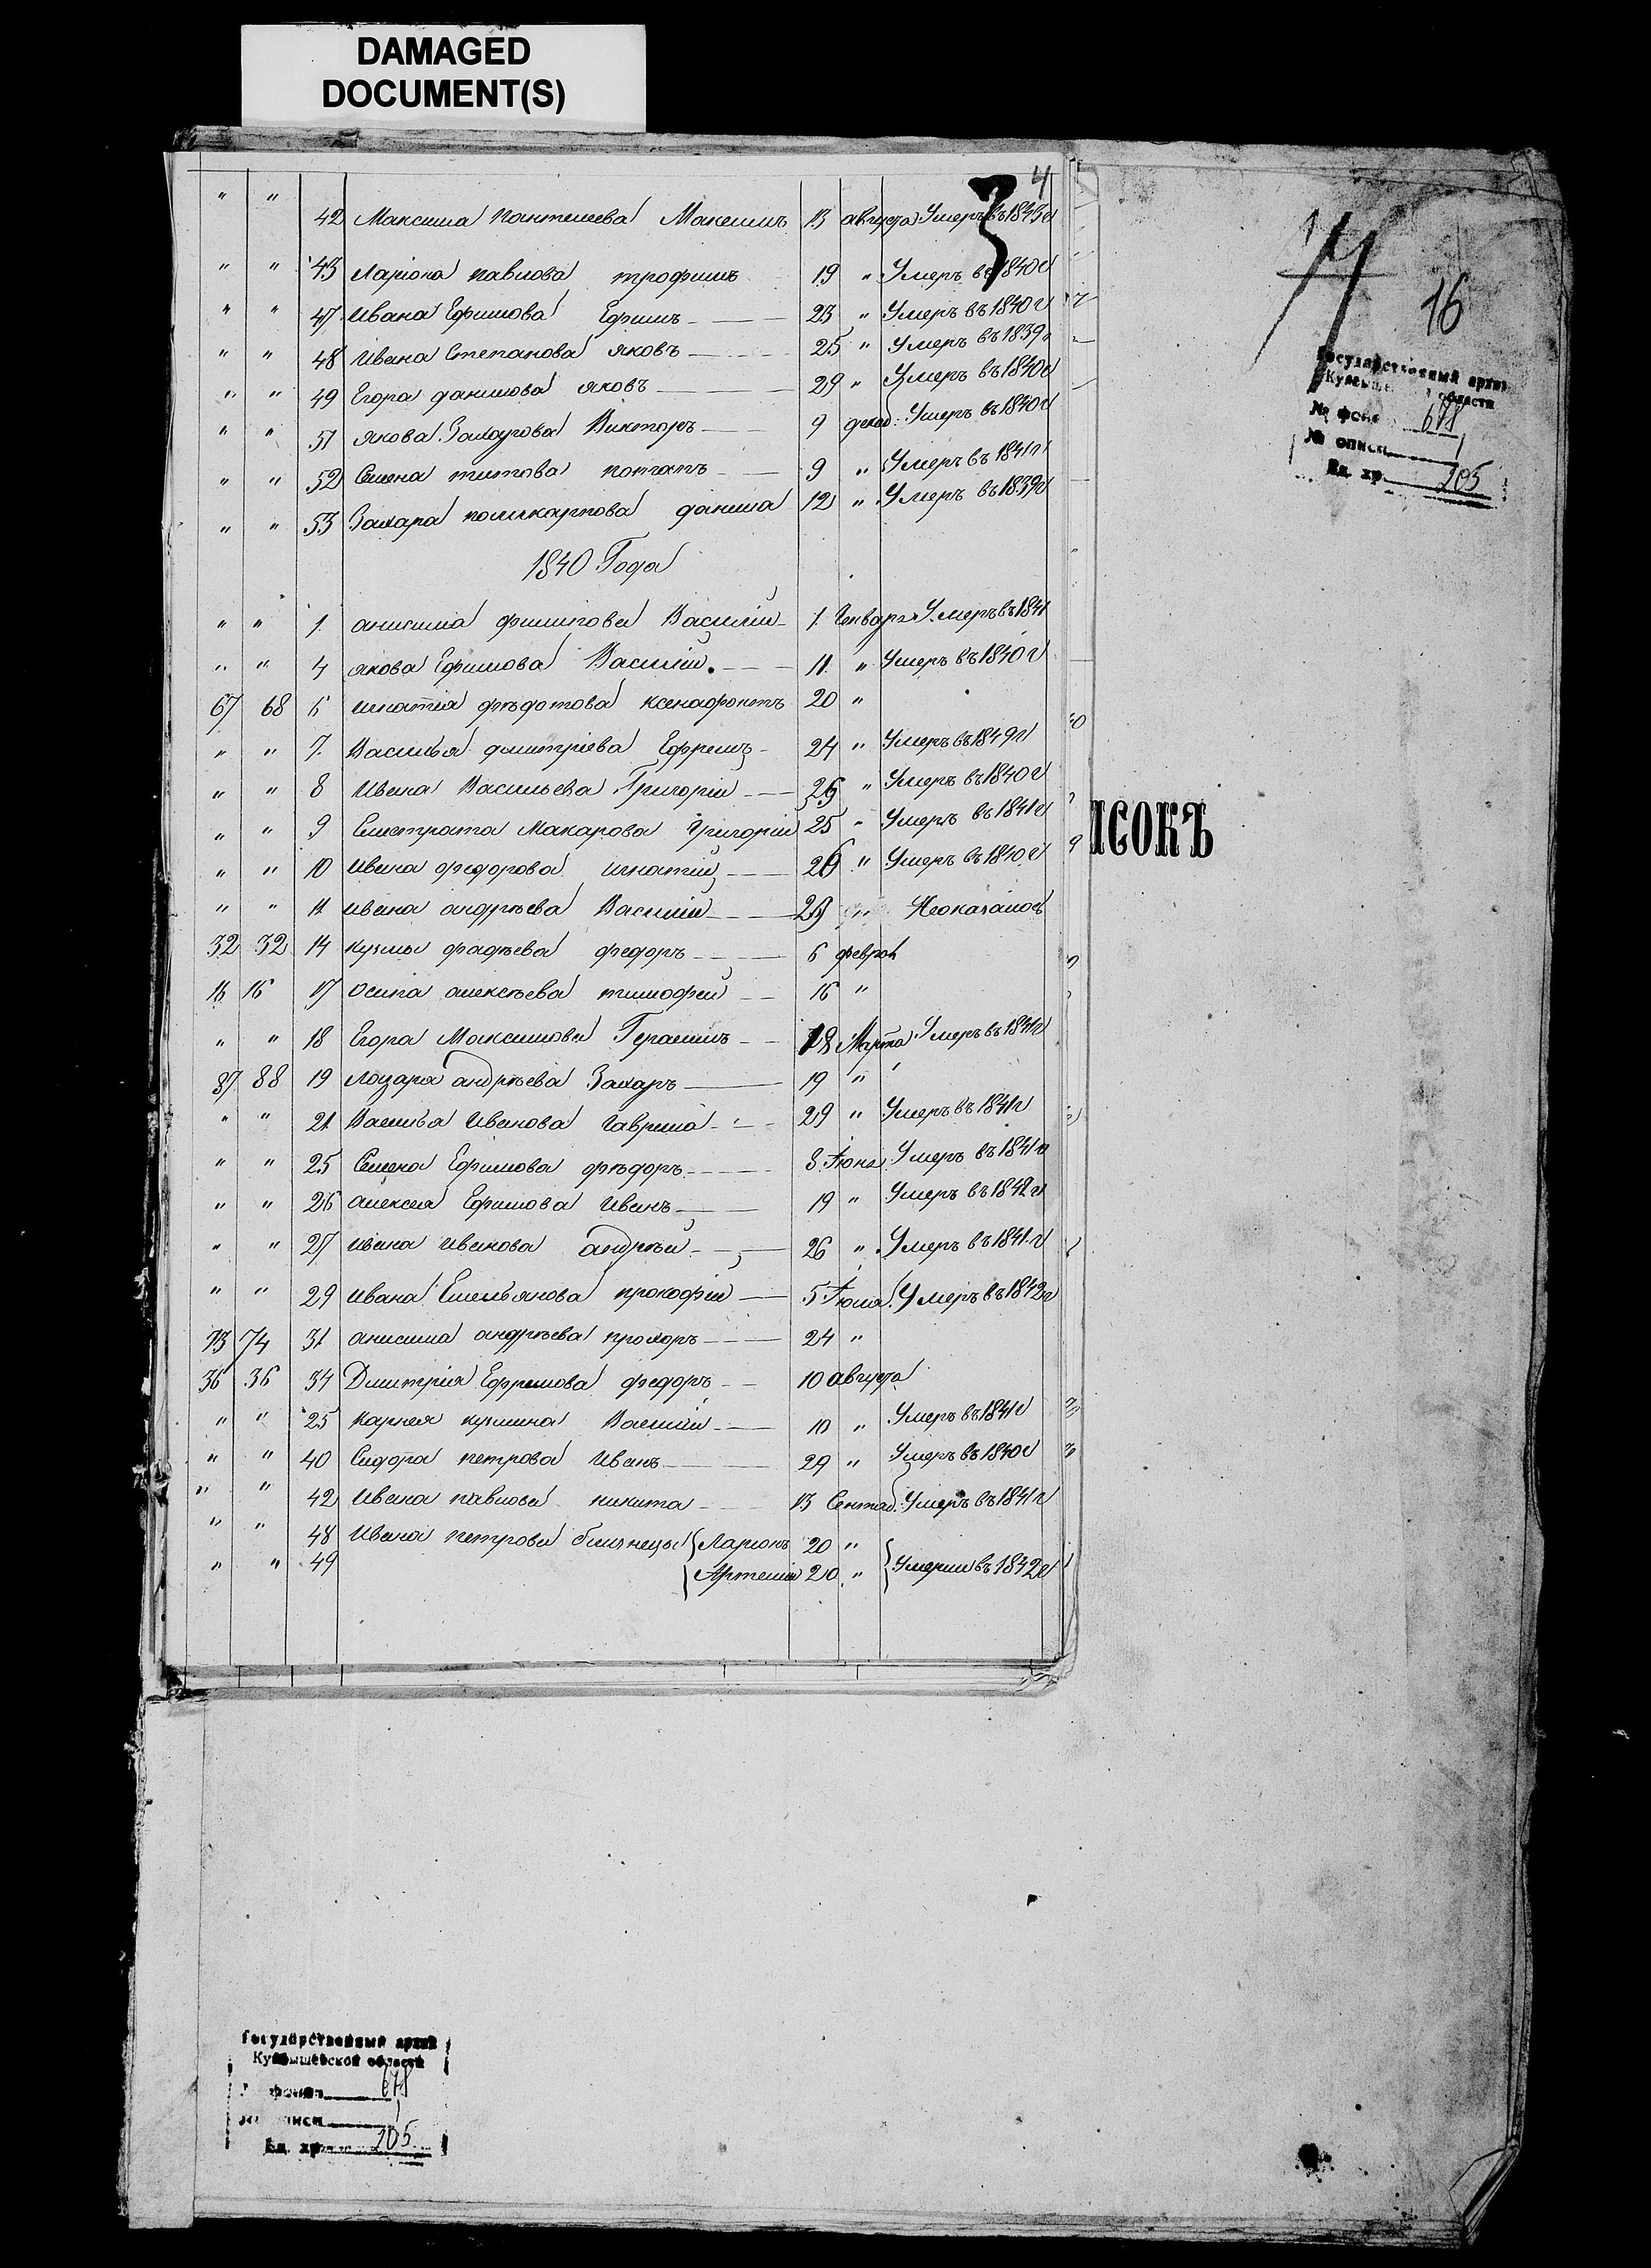 DAMAGED
DOCUMENT(S)
4
3
" " 42 Максима Пантелеева Максимъ 13 августа Умеръ въ 1843 г
" " 45 Ларіона павлова трофимъ 19 " Умеръ въ 1840 г
" " 47 Ивана Ефимова Ефимъ 23 " Умеръ въ 1840 г
" " 48 Ивана Степанова яковъ 25 " Умеръ въ 1839 г
" " 49 Егора данилова яковъ 29 " Умеръ въ 1840 г
" " 51 якова Захарова Викторъ 9 декаб. Умеръ въ 1840 г
" " 52 Семена титова потапъ 9 " Умеръ въ 1841 г
" " 53 Захара поликарпова данила 12 " Умеръ въ 1839 г
1840 Года
" " 1. анисима филипова Василій 1. Генваря Умеръ въ 1841
" " 4 якова Ефимова Василій 11 " Умеръ въ 1840 г
67 68 6 игнатія фѣдотова ксенафонтъ 20 "
" " 7. Василья дмитріева Ефремъ 24 " Умеръ въ 1849 г
" " 8 Ивана Васильева Григорій 26 " Умеръ въ 1840 г
" " 9 Елистрата Макарова Григорій 25 " Умеръ въ 1841 г
" " 10 Ивана федорова игнатій 26 " Умеръ въ 1840 г
" " 11 Ивана андрѣева Василій 29 " Неоказалось
32 32 14 кузмы фадѣева федоръ 6 феврал
16 16 17 осипа алексѣева тимофей 16 "
" " 18 Егора Максимова Герасимъ 18 Марта Умеръ въ 1841 г
87 88 19 лазаря андрѣева Захаръ 19 "
" " 21 Василья Иванова гаврила 29 " Умеръ въ 1841 г
" " 25 Семена Ефимова фѣдоръ 8 Іюня Умеръ въ 1841 г
" " 26 алексея Ефимова Иванъ 19 " Умеръ въ 1842 г
" " 27 ивана иванова андрѣй 26 " Умеръ въ 1841 г
" " 29 Ивана Емельянова прокофій 5 Іюля Умеръ въ 1842 г
73 74 31 анисима андрѣева прохоръ 24 "
36 36 34 Дмитрія Ефремова федоръ 10 августа
" " 25 карнея кузмина Василій 10 " Умеръ въ 1841 г
" " 40 Сидора петрова Иванъ 29 " Умеръ въ 1840 г
" " 42 Ивана павлова никита 13 Сентяб. Умеръ въ 1841 г
" " 48 Ивана петрова близнецы Ларіонъ 20 "
" " 49 Артемій 20 " Умерли въ 1842 г
16
Государственный архив
области
№ фонда 671
№ описи 1
Ед. хр. 205
ИСОКЪ
Государственный архив
Куйбышевской области
фонда 671
описи 1
Ед. хр. 205